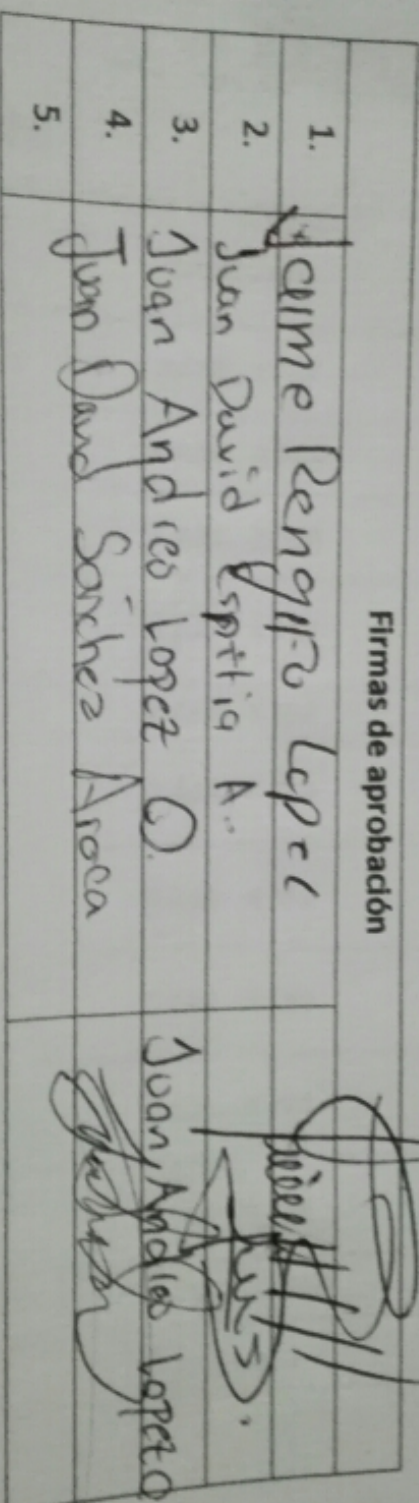 Firmas de aprobación
1. Jaime Rengifo Lopez
2. Juan David Espitia A.
3. Juan Andres Lopez O. Juan Andres Lopez O
4. Juan David Sánchez Aroca
5.